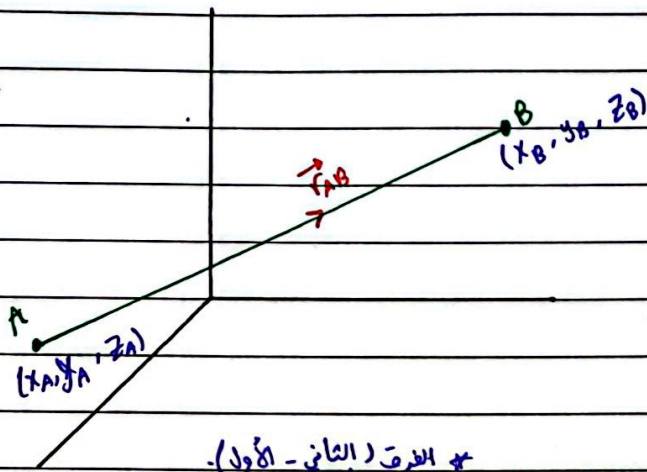 B
(xB, yB, zB)
→rAB
A
(xA, yA, zA)
* الفرق (الثاني - الأول).